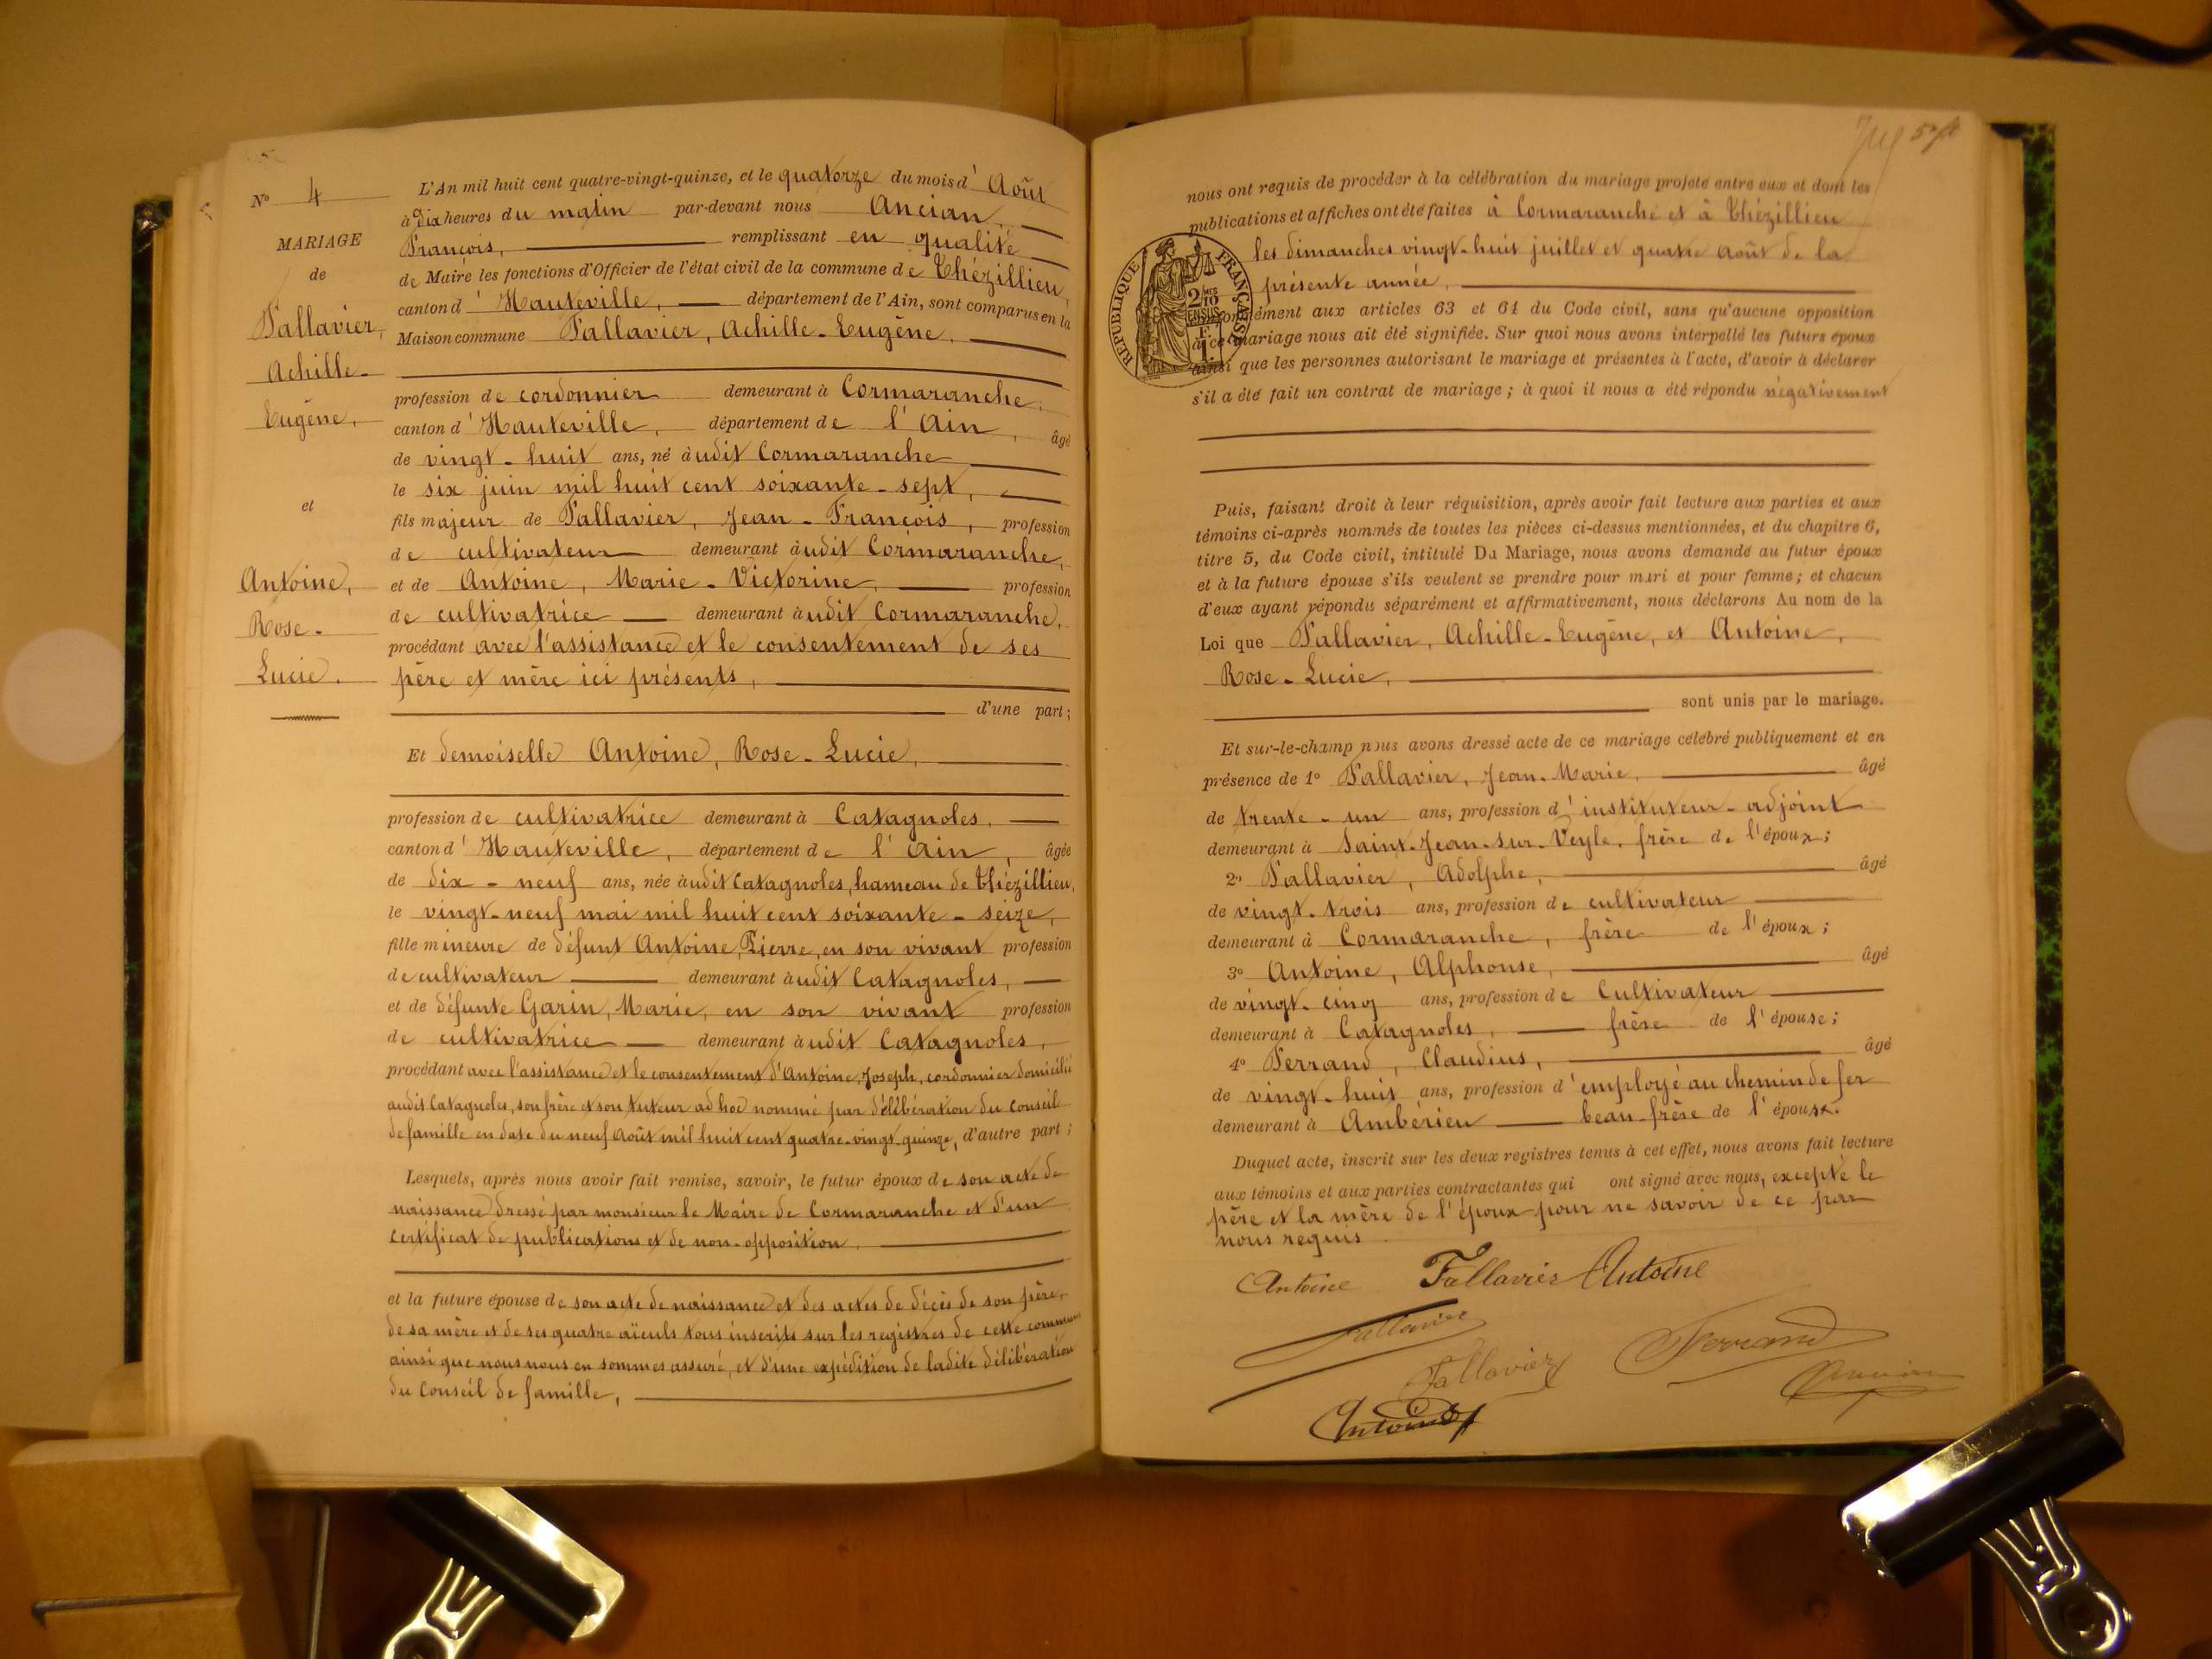 N° 4
MARIAGE
de
Fallavier,
Achille-
Eugène,
et
Antoine,
Rose-
Lucie.
L'An mil huit cent quatre-vingt-quinze, et le quatorze du mois d'Août
à dix heures du matin par-devant nous Ancian
François, remplissant en qualité
de Maire les fonctions d'Officier de l'état civil de la commune de Thézillieu,
canton d'Hauteville, département de l'Ain, sont comparus en la
Maison commune Fallavier, Achille-Eugène,
profession de cordonnier demeurant à Cormaranche,
canton d'Hauteville, département de l'Ain, âgé
de vingt-huit ans, né àudit Cormaranche
le six juin mil huit cent soixante-sept,
fils majeur de Fallavier, Jean-François, profession
de cultivateur demeurant àudit Cormaranche,
et de Antoine, Marie-Victorine, profession
de cultivatrice demeurant àudit Cormaranche,
procédant avec l'assistance et le consentement de ses
père et mère ici présents,
d'une part;
Et demoiselle Antoine, Rose-Lucie,
profession de cultivatrice demeurant à Catagnoles,
canton d'Hauteville, département de l'Ain, âgée
de dix-neuf ans, née àudit Catagnoles, hameau de Thézillieu,
le vingt-neuf mai mil huit cent soixante-seize,
fille mineure de défunt Antoine, Pierre, en son vivant profession
de cultivateur demeurant àudit Catagnoles,
et de défunte Garin, Marie, en son vivant profession
de cultivatrice demeurant àudit Catagnoles,
procédant avec l'assistance et le consentement d'Antoine, Joseph, cordonnier domicilié
audit Catagnoles, son frère et son tuteur ad hoc nommé par délibération du Conseil
de famille en date du neuf Août mil huit cent quatre-vingt-quinze, d'autre part;
Lesquels, après nous avoir fait remise, savoir, le futur époux de son acte de
naissance dressé par monsieur le Maire de Cormaranche et d'un
certificat de publications et de non-opposition,
et la future épouse de son acte de naissance et des actes de décès de son père,
de sa mère et de ses quatre aïeuls tous inscrits sur les registres de cette commune
ainsi que nous nous en sommes assuré, et d'une expédition de ladite délibération
du Conseil de famille,
nous ont requis de procéder à la célébration du mariage projeté entre eux et dont les
publications et affiches ont été faites à Cormaranche et à Thézillieu
les dimanches vingt-huit juillet et quatre août de la
présente année,
RÉPUBLIQUE FRANÇAISE
2/10 EN SUS
conformément aux articles 63 et 64 du Code civil, sans qu'aucune opposition
à ce mariage nous ait été signifiée. Sur quoi nous avons interpellé les futurs époux
ainsi que les personnes autorisant le mariage et présentes à l'acte, d'avoir à déclarer
s'il a été fait un contrat de mariage; à quoi il nous a été répondu négativement
Puis, faisant droit à leur réquisition, après avoir fait lecture aux parties et aux
témoins ci-après nommés de toutes les pièces ci-dessus mentionnées, et du chapitre 6,
titre 5, du Code civil, intitulé Du Mariage, nous avons demandé au futur époux
et à la future épouse s'ils veulent se prendre pour mari et pour femme; et chacun
d'eux ayant répondu séparément et affirmativement, nous déclarons Au nom de la
Loi que Fallavier, Achille-Eugène, et Antoine,
Rose-Lucie,
sont unis par le mariage.
Et sur-le-champ nous avons dressé acte de ce mariage célébré publiquement et en
présence de 1° Fallavier, Jean-Marie, âgé
de trente-un ans, profession d'instituteur-adjoint
demeurant à Saint-Jean-sur-Veyle, frère de l'époux;
2° Fallavier, Adolphe, âgé
de vingt-trois ans, profession de cultivateur
demeurant à Cormaranche, frère de l'époux;
3° Antoine, Alphonse, âgé
de vingt-cinq ans, profession de Cultivateur
demeurant à Catagnoles, frère de l'épouse;
4° Ferrand, Claudius, âgé
de vingt-huit ans, profession d'employé au chemin de fer
demeurant à Ambérieu beau-frère de l'époux.
Duquel acte, inscrit sur les deux registres tenus à cet effet, nous avons fait lecture
aux témoins et aux parties contractantes qui ont signé avec nous, excepté le
père et la mère de l'époux pour ne savoir de ce par
nous requis
Antoine Fallavier Antoine
Fallavier
Fallavier Ferrand
Antoine Ancian